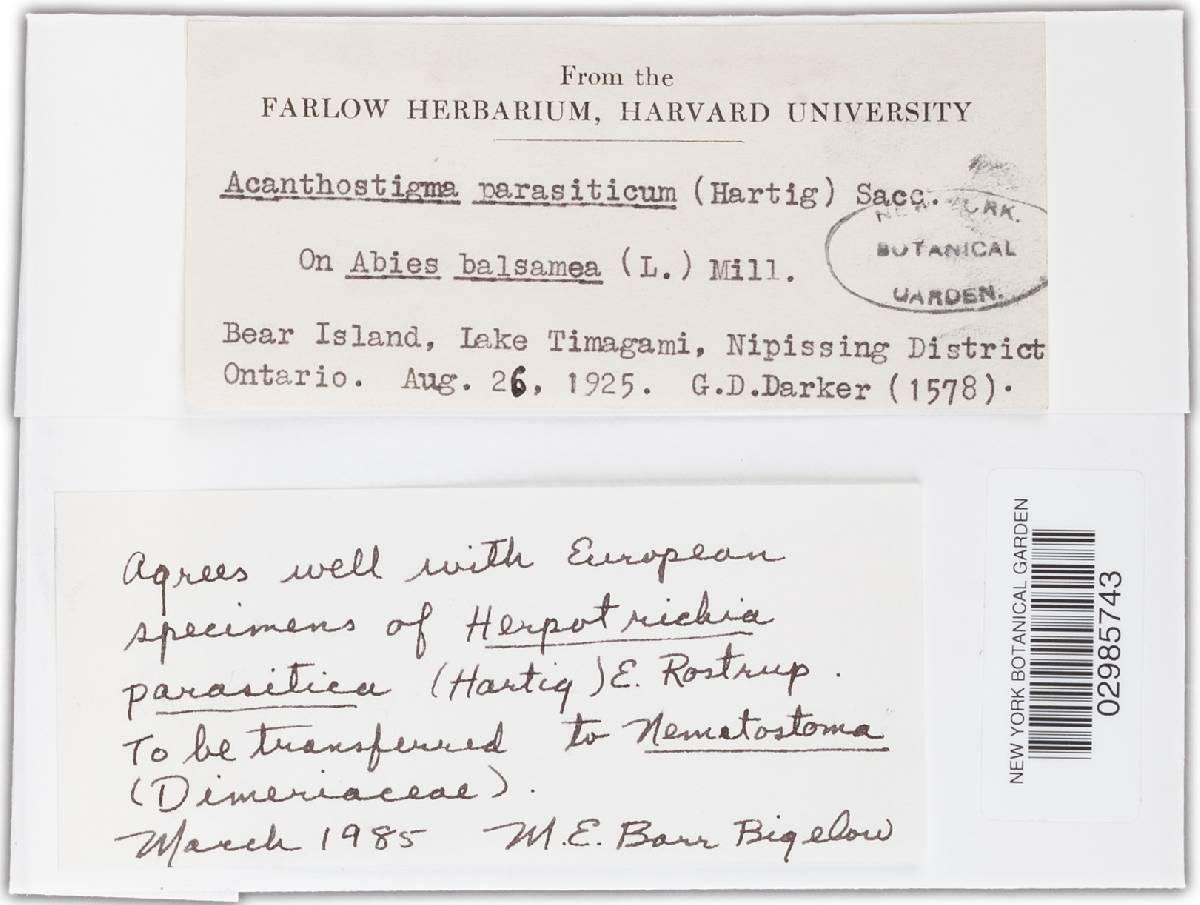 From the
FARLOW HERBARIUM, HARVARD UNIVERSITY
Acanthostigma parasiticum (Hartig) Sacc.
On Abies balsamea (L.) Mill.
NEW YORK
BOTANICAL
GARDEN.
Bear Island, Lake Timagami, Nipissing District
Ontario. Aug. 26, 1925. G.D.Darker (1578).
Agrees well with European
specimens of Herpotrichia
parasitica (Hartig) E. Rostrup.
To be transferred to Nematostoma
(Dimeriaceae).
March 1985 M.E. Barr Bigelow
NEW YORK BOTANICAL GARDEN
02985743